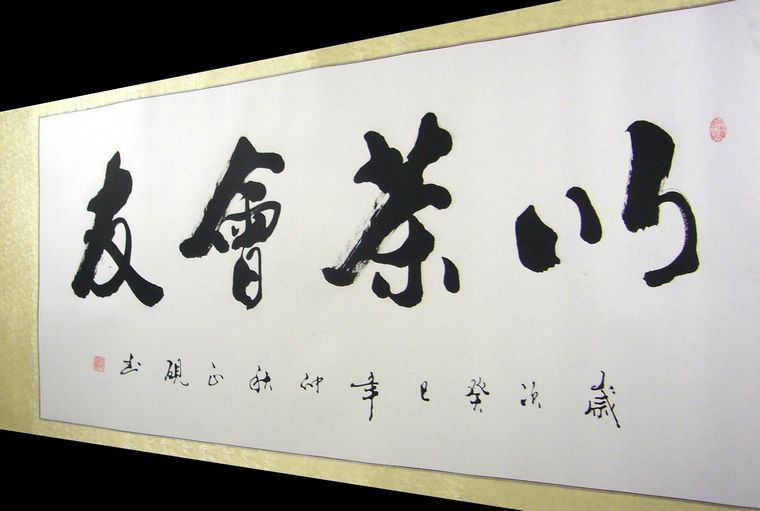 以茶會友
歲次癸巳年仲秋正硯书